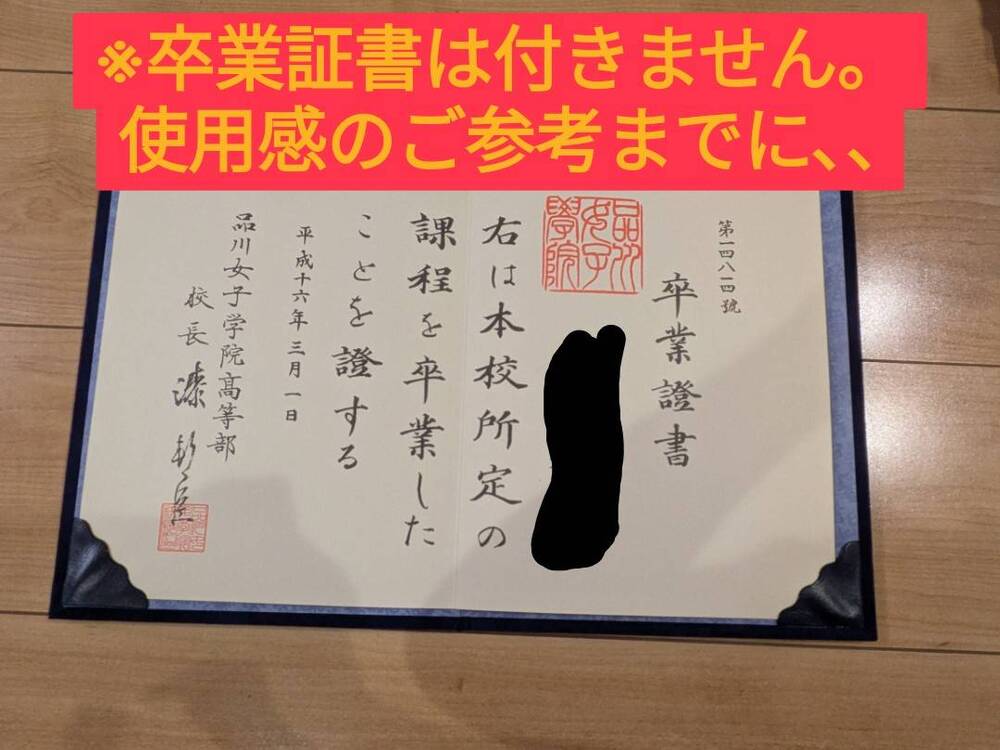 ※卒業証書は付きません。
使用感のご参考までに、、
第一四八一四號
卒業證書
品川
女子
學院
右は本校所定の
課程を卒業した
ことを證する
平成十六年三月一日
品川女子学院高等部
校長 漆